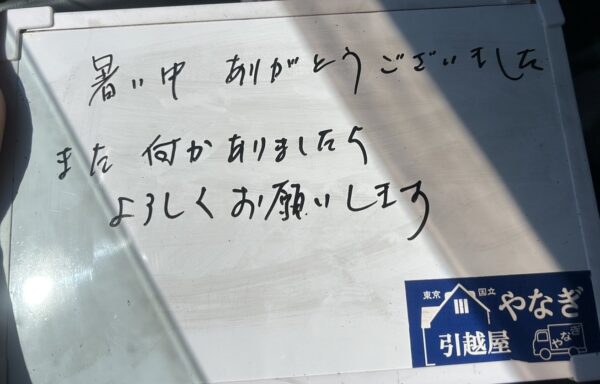 暑い中 ありがとうございました
また 何かありましたら
よろしくお願いします
東京 国立 やなぎ
引越屋 やなぎ